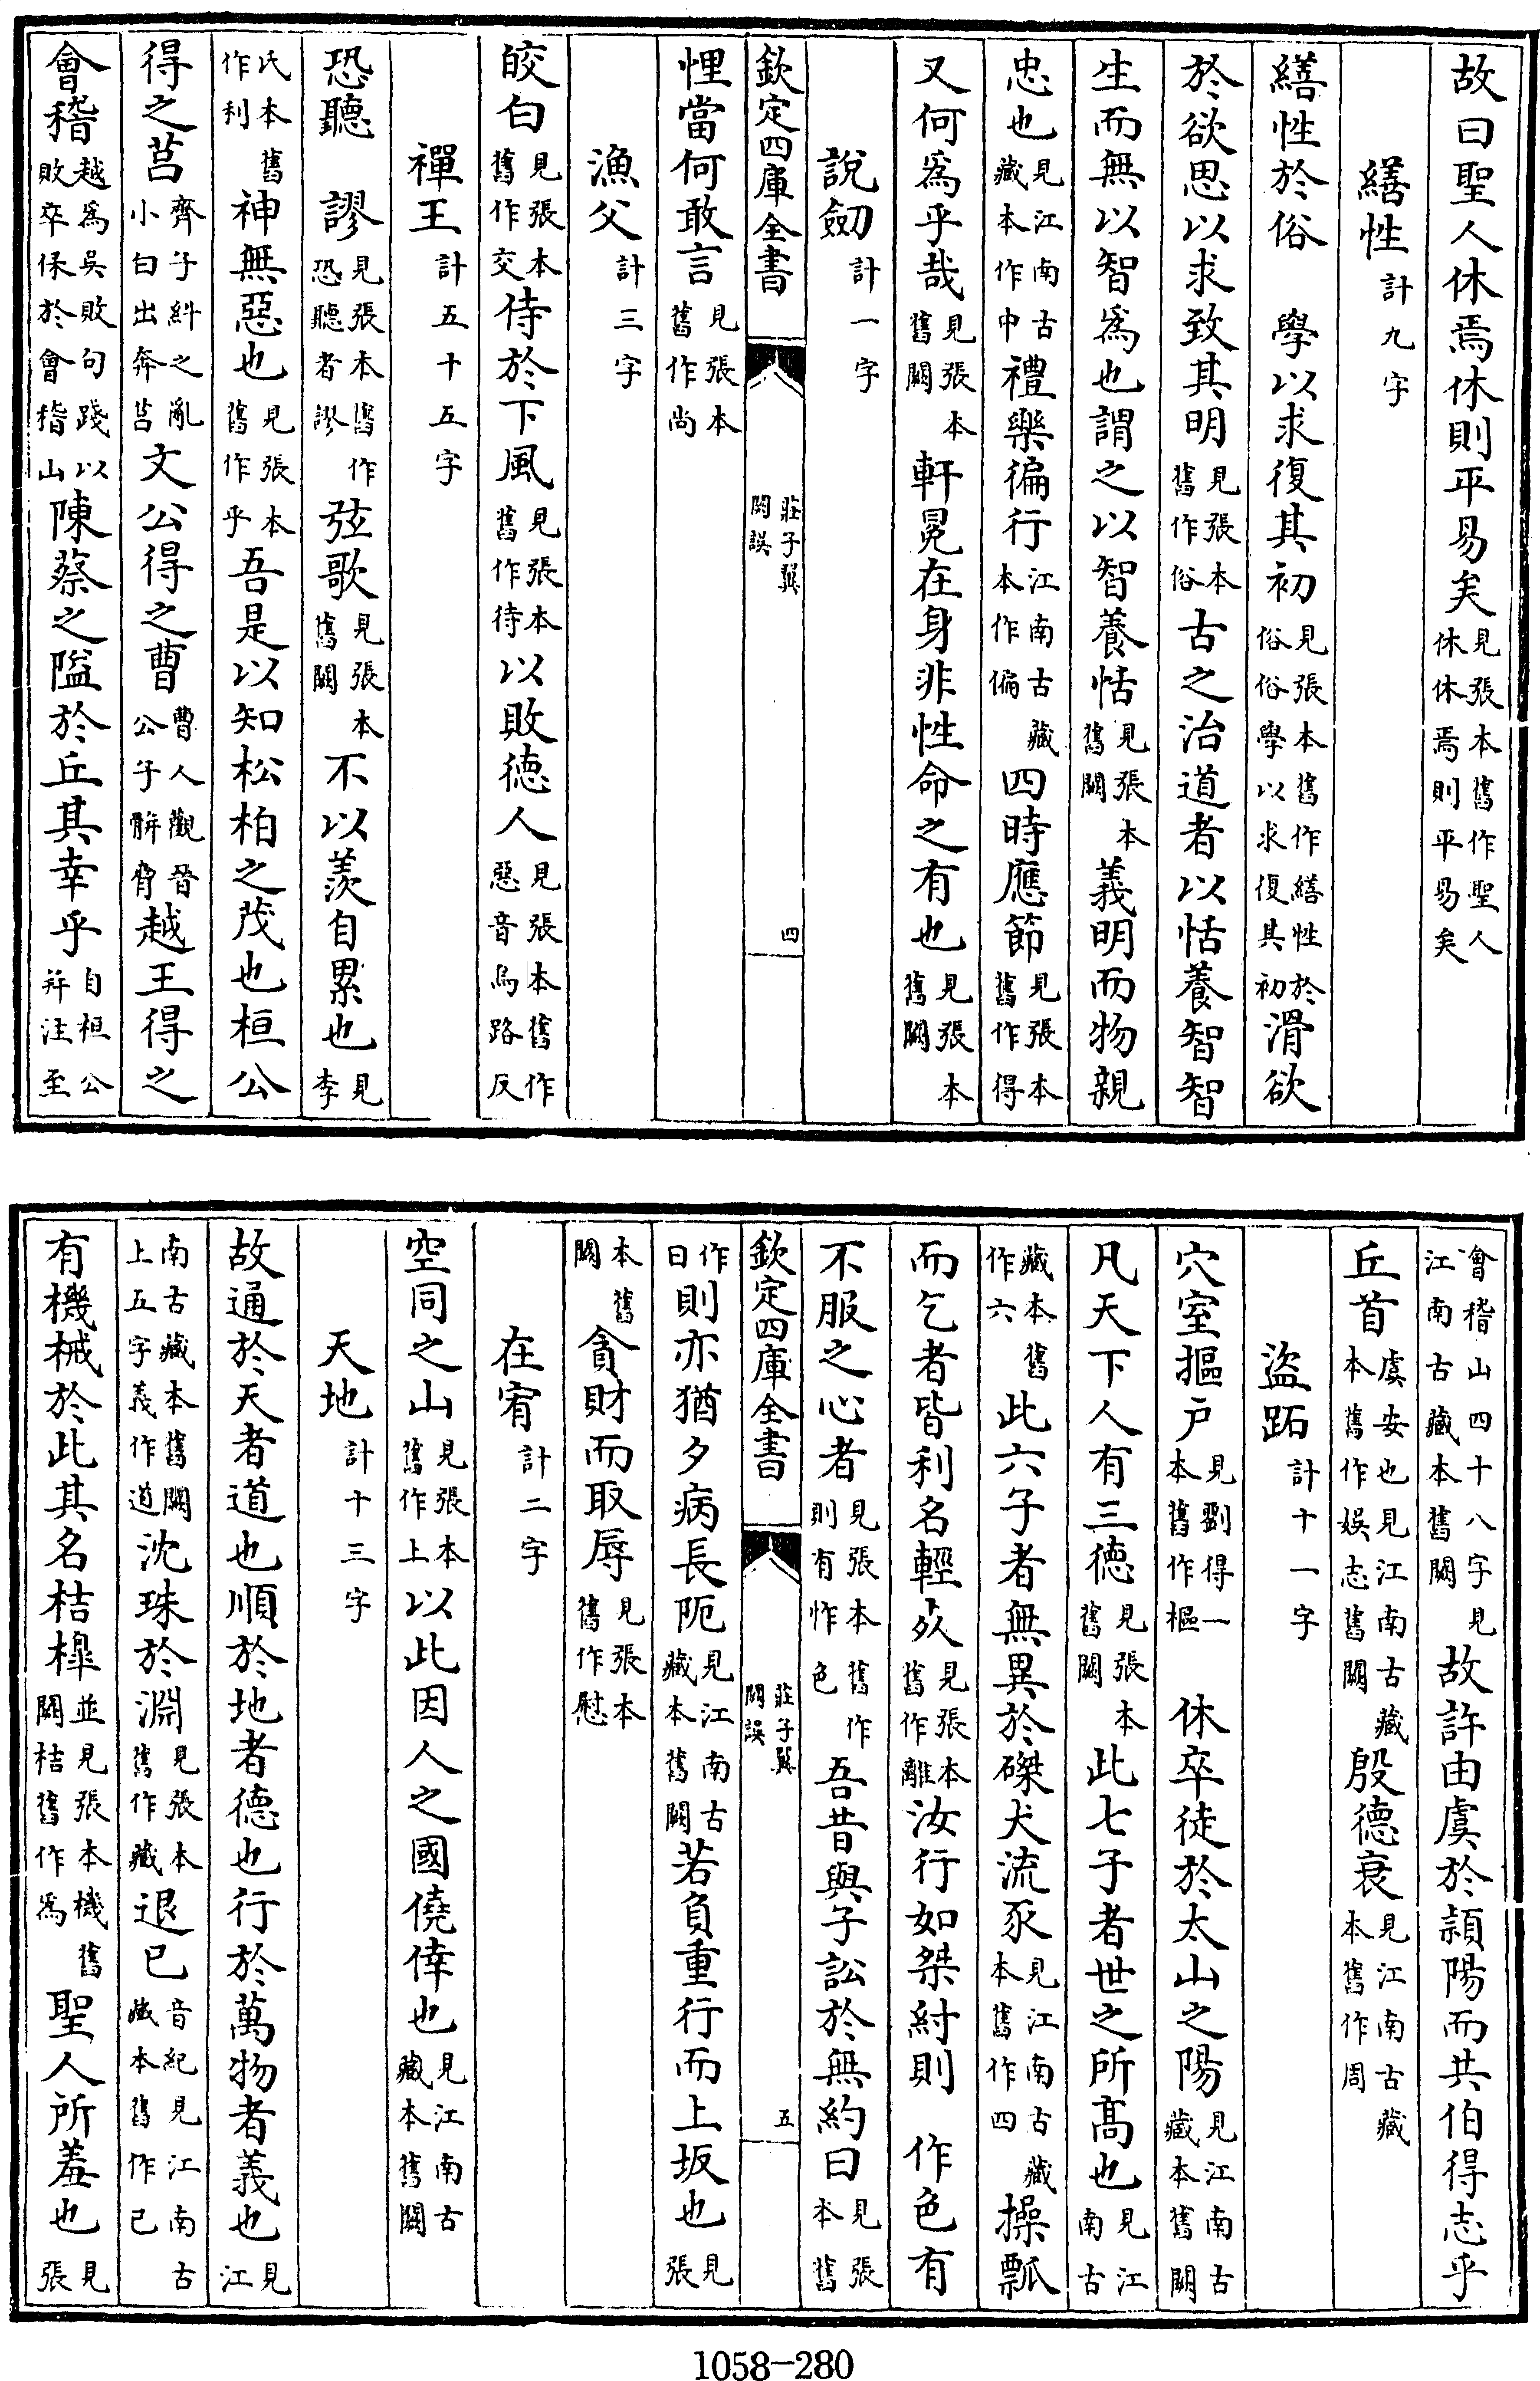 故曰聖人休焉休則平易矣見張本舊作聖人休休焉則平易矣
繕性計九字
繕性於俗　學以求復其初見張本舊作繕性於俗俗學以求復其初滑欲
於欲思以求致其明見張本舊作俗古之治道者以恬養智智
生而無以智爲也謂之以智養恬見張本舊闕義明而物親
忠也見江南古藏本作中禮樂徧行江南古藏本作偏四時應節見張本舊作得
又何爲乎哉見張本舊闕軒冕在身非性命之有也見張本舊闕
說劒計一字
欽定四庫全書
莊子翼
闕誤
四
悝當何敢言見張本舊作尚
漁父計三字
皎白見張本舊作交侍於下風見張本舊作待以敗德人見張本舊作惡音烏路反
禪王計五十五字
恐聽　謬見張本舊作恐聽者謬弦歌見張本舊闕不以羨自累也見李
氏本舊作利神無惡也見張本舊作乎吾是以知松柏之茂也桓公
得之莒齊子糾之亂小白出奔莒文公得之曹曹人觀晉公子骿脅越王得之
會稽越爲吳敗句踐以敗卒保於會稽山陳蔡之隘於丘其幸乎自桓公并注至
會稽山四十八字見江南古藏本舊闕故許由虞於頴陽而共伯得志乎
丘首虞安也見江南古藏本舊作娛志舊闕殷德衰見江南古藏本舊作周
盜跖計十一字
穴室摳户見劉得一本舊作樞　休卒徒於太山之陽見江南古藏本舊闕
凡天下人有三德見張本舊闕此七子者世之所髙也見江南古
藏本舊作六此六子者無異於磔犬流豕見江南古藏本舊作四操瓢
而乞者皆利名輕㱥見張本舊作離汝行如桀紂則　作色有
不服之心者見張本舊作則有怍色吾昔與子訟於無約曰見張本舊
欽定四庫全書
莊子翼
闕誤
五
作日則亦猶夕病長阨見江南古藏本舊闕若負重行而上坂也見張
本舊闕貪財而取辱見張本舊作慰
在宥計二字
空同之山見張本舊作上以此因人之國僥倖也見江南古藏本舊闕
天地計十三字
故通於天者道也順於地者德也行於萬物者義也見江
南古藏本舊闕上五字義作道沈珠於淵見張本舊作藏退已音紀見江南古藏本舊作己
有機械於此其名桔橰並見張本機舊闕桔舊作爲聖人所羞也見張
1058-280